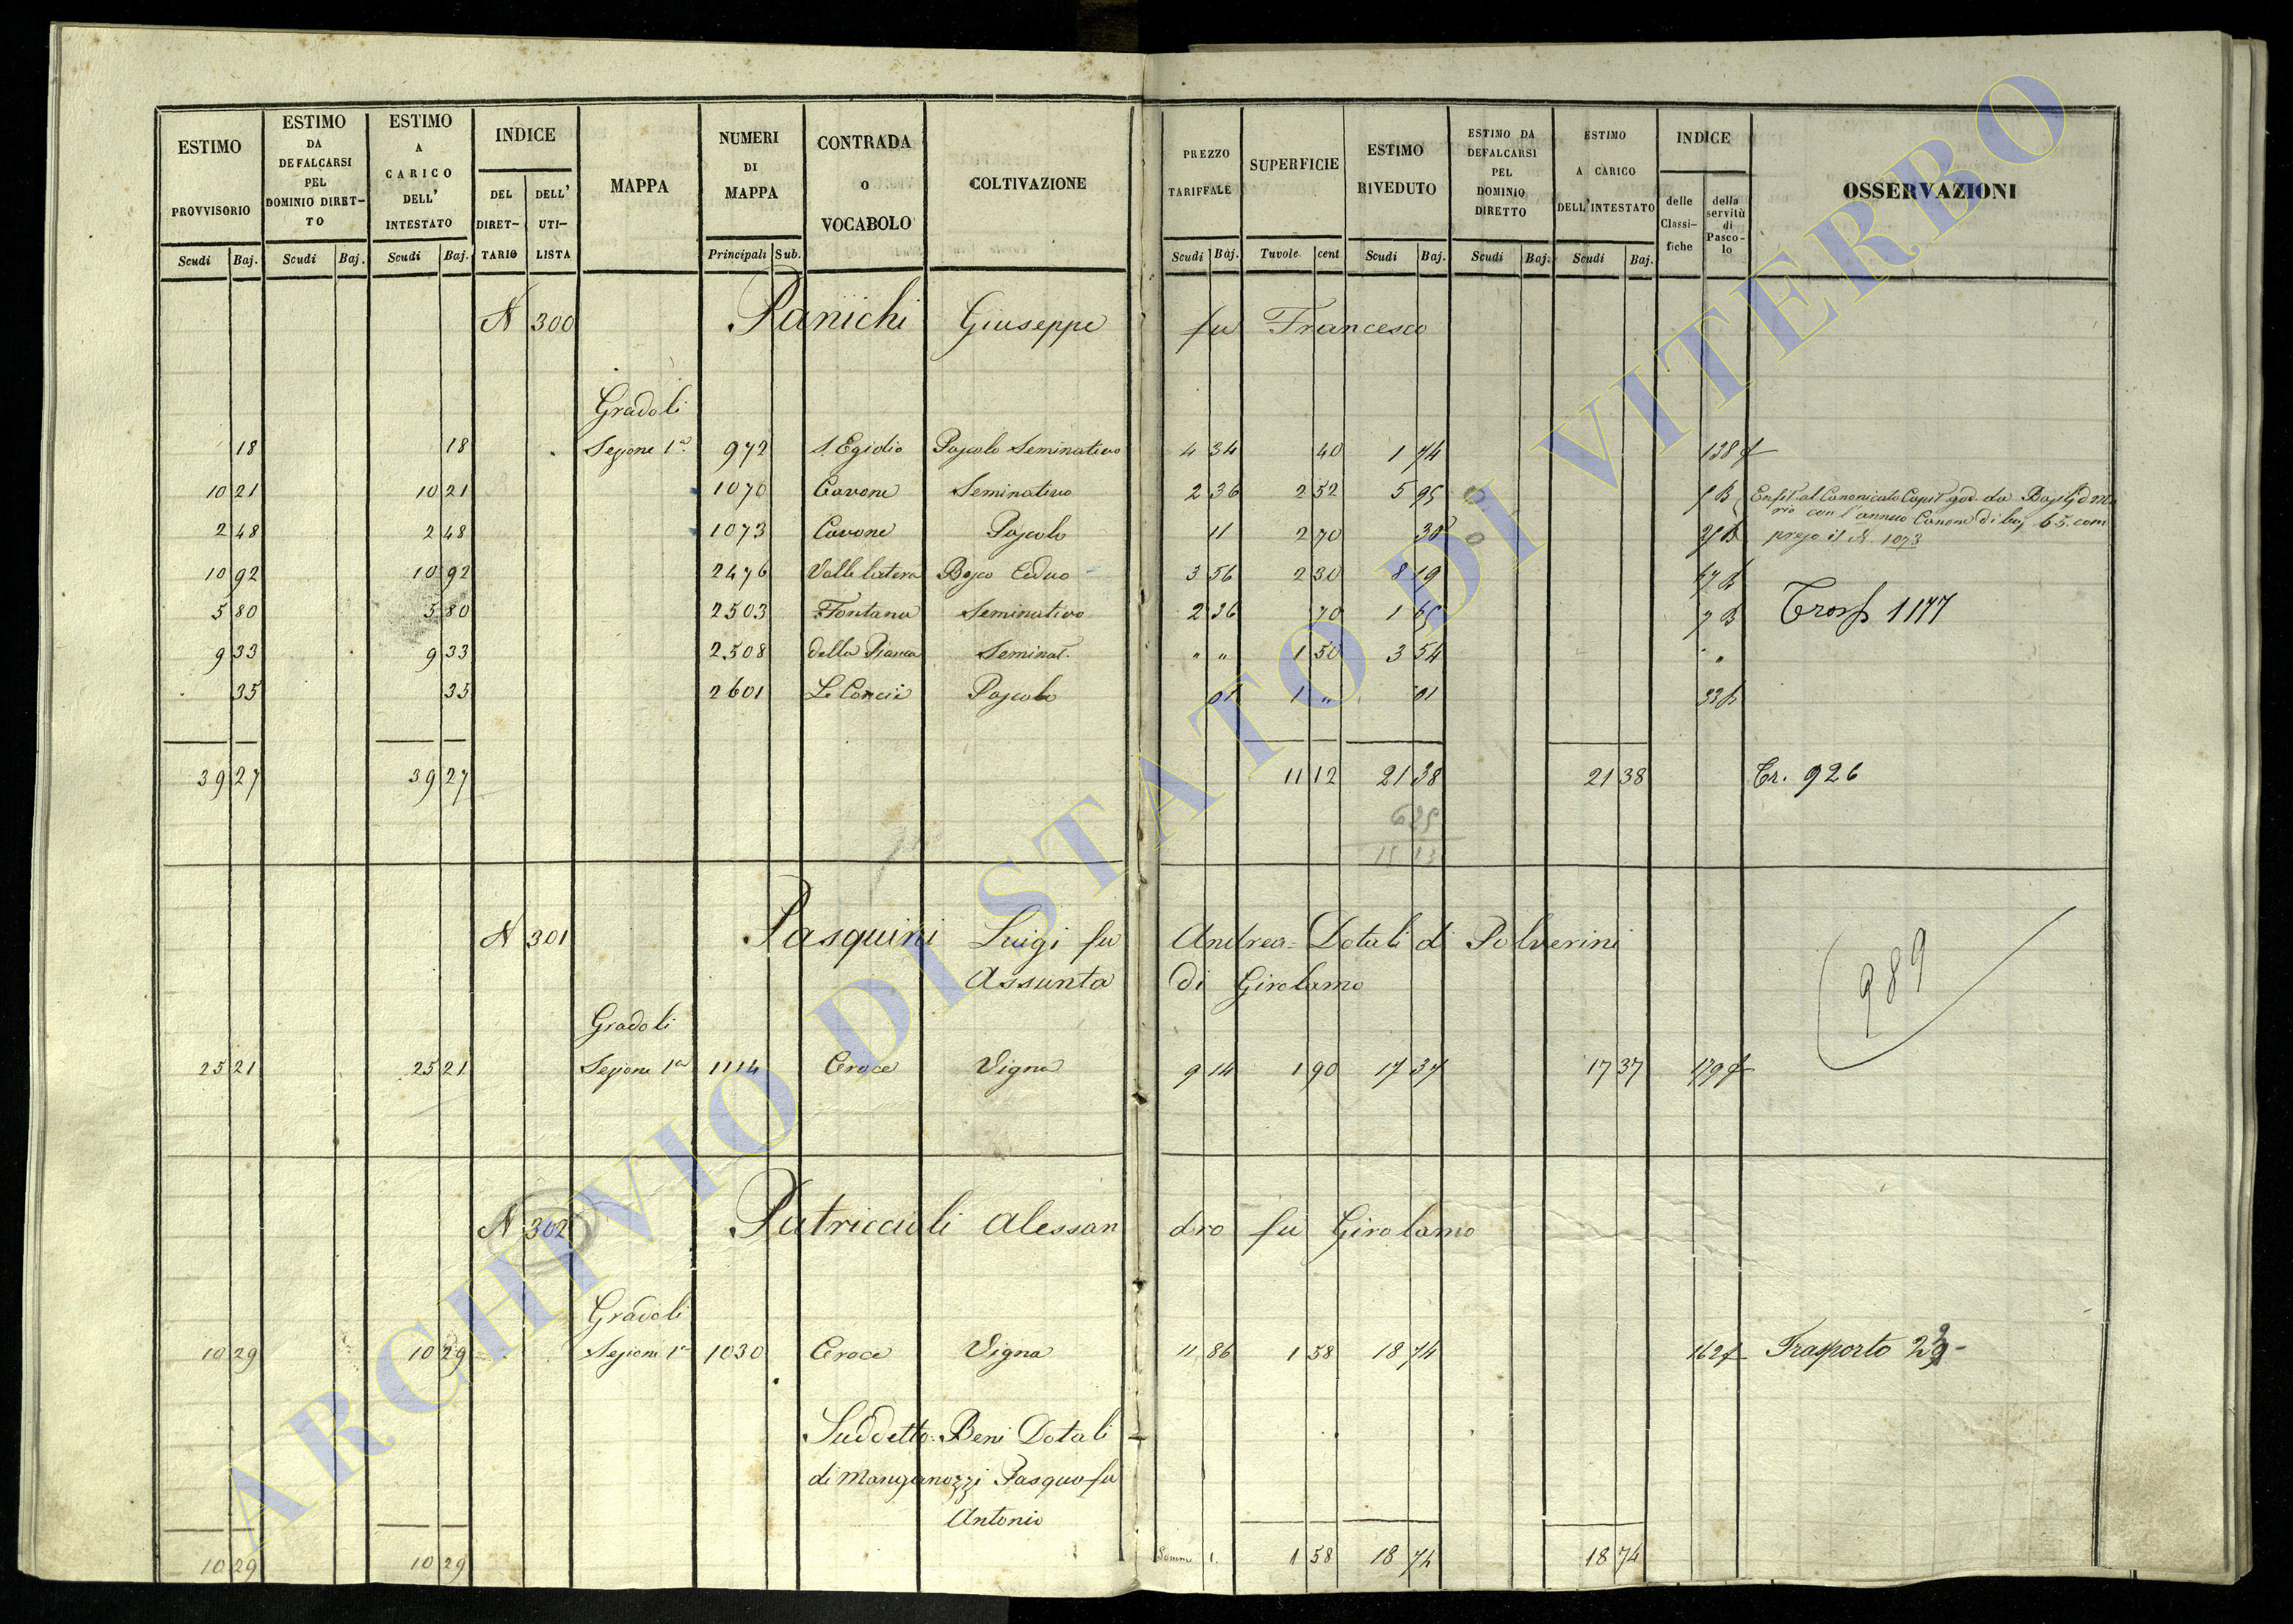 ESTIMO PROVVISORIO Scudi Baj.
ESTIMO DA DEFALCARSI PEL DOMINIO DIRET-TO Scudi Baj.
ESTIMO A CARICO DELL' INTESTATO Scudi Baj.
INDICE DEL DIRET-TARIO DELL' UTI-LISTA
MAPPA
NUMERI DI MAPPA Principali Sub.
CONTRADA O VOCABOLO
COLTIVAZIONE
PREZZO TARIFFALE Scudi Baj.
SUPERFICIE Tavole cent
ESTIMO RIVEDUTO Scudi Baj.
ESTIMO DA DEFALCARSI PEL DOMINIO DIRETTO Scudi Baj.
ESTIMO A CARICO DELL'INTESTATO Scudi Baj.
INDICE delle Classi-fiche della servitù di Pasco-lo
OSSERVAZIONI
N 300 Panichi Giuseppe fu Francesco
Gradoli
18 18 Sezione 1a 972 S. Egidio Pascolo Seminativo 4 34 40 1 74 138
10 21 10 21 1070 Cavone Seminativo 2 36 2 52 5 95 Enfit. al Canonicato Capit. god. da
2 48 2 48 1073 Cavone Pascolo 11 2 70 30 rio con l'annuo Canone di baj 65. com
preso il N. 1073
10 92 10 92 2476 Valle latera Bosco Ceduo 3 56 2 30 8 19
5 80 5 80 2503 Fontana Seminativo 2 36 70 1 65 Trasp 1177
9 33 9 33 2508 della Seminat. " " 1 50 3 54 "
35 35 2601 Le Pascolo 01 1 " 01
39 27 39 27 11 12 21 38 21 38 Tr. 926
6 25
15 13
N 301 Pasquini Luigi fu Andrea Dotali di Polverini
Assunta di Girolamo
989
Gradoli
25 21 25 21 Sezione 1a 1114 Croce Vigna 9 14 1 90 17 37 17 37 179
N 302 Patriccioli Alessandro fu Girolamo
Gradoli
10 29 10 29 Sezione 1a 1030 Croce Vigna 11 86 1 58 18 74 162 Trasporto
Suddetto Beni Dotali
di Manganozzi Pasqua fu
Antonio
10 29 10 29 Somm 1 58 18 74 18 74
ARCHIVIO DI STATO DI VITERBO